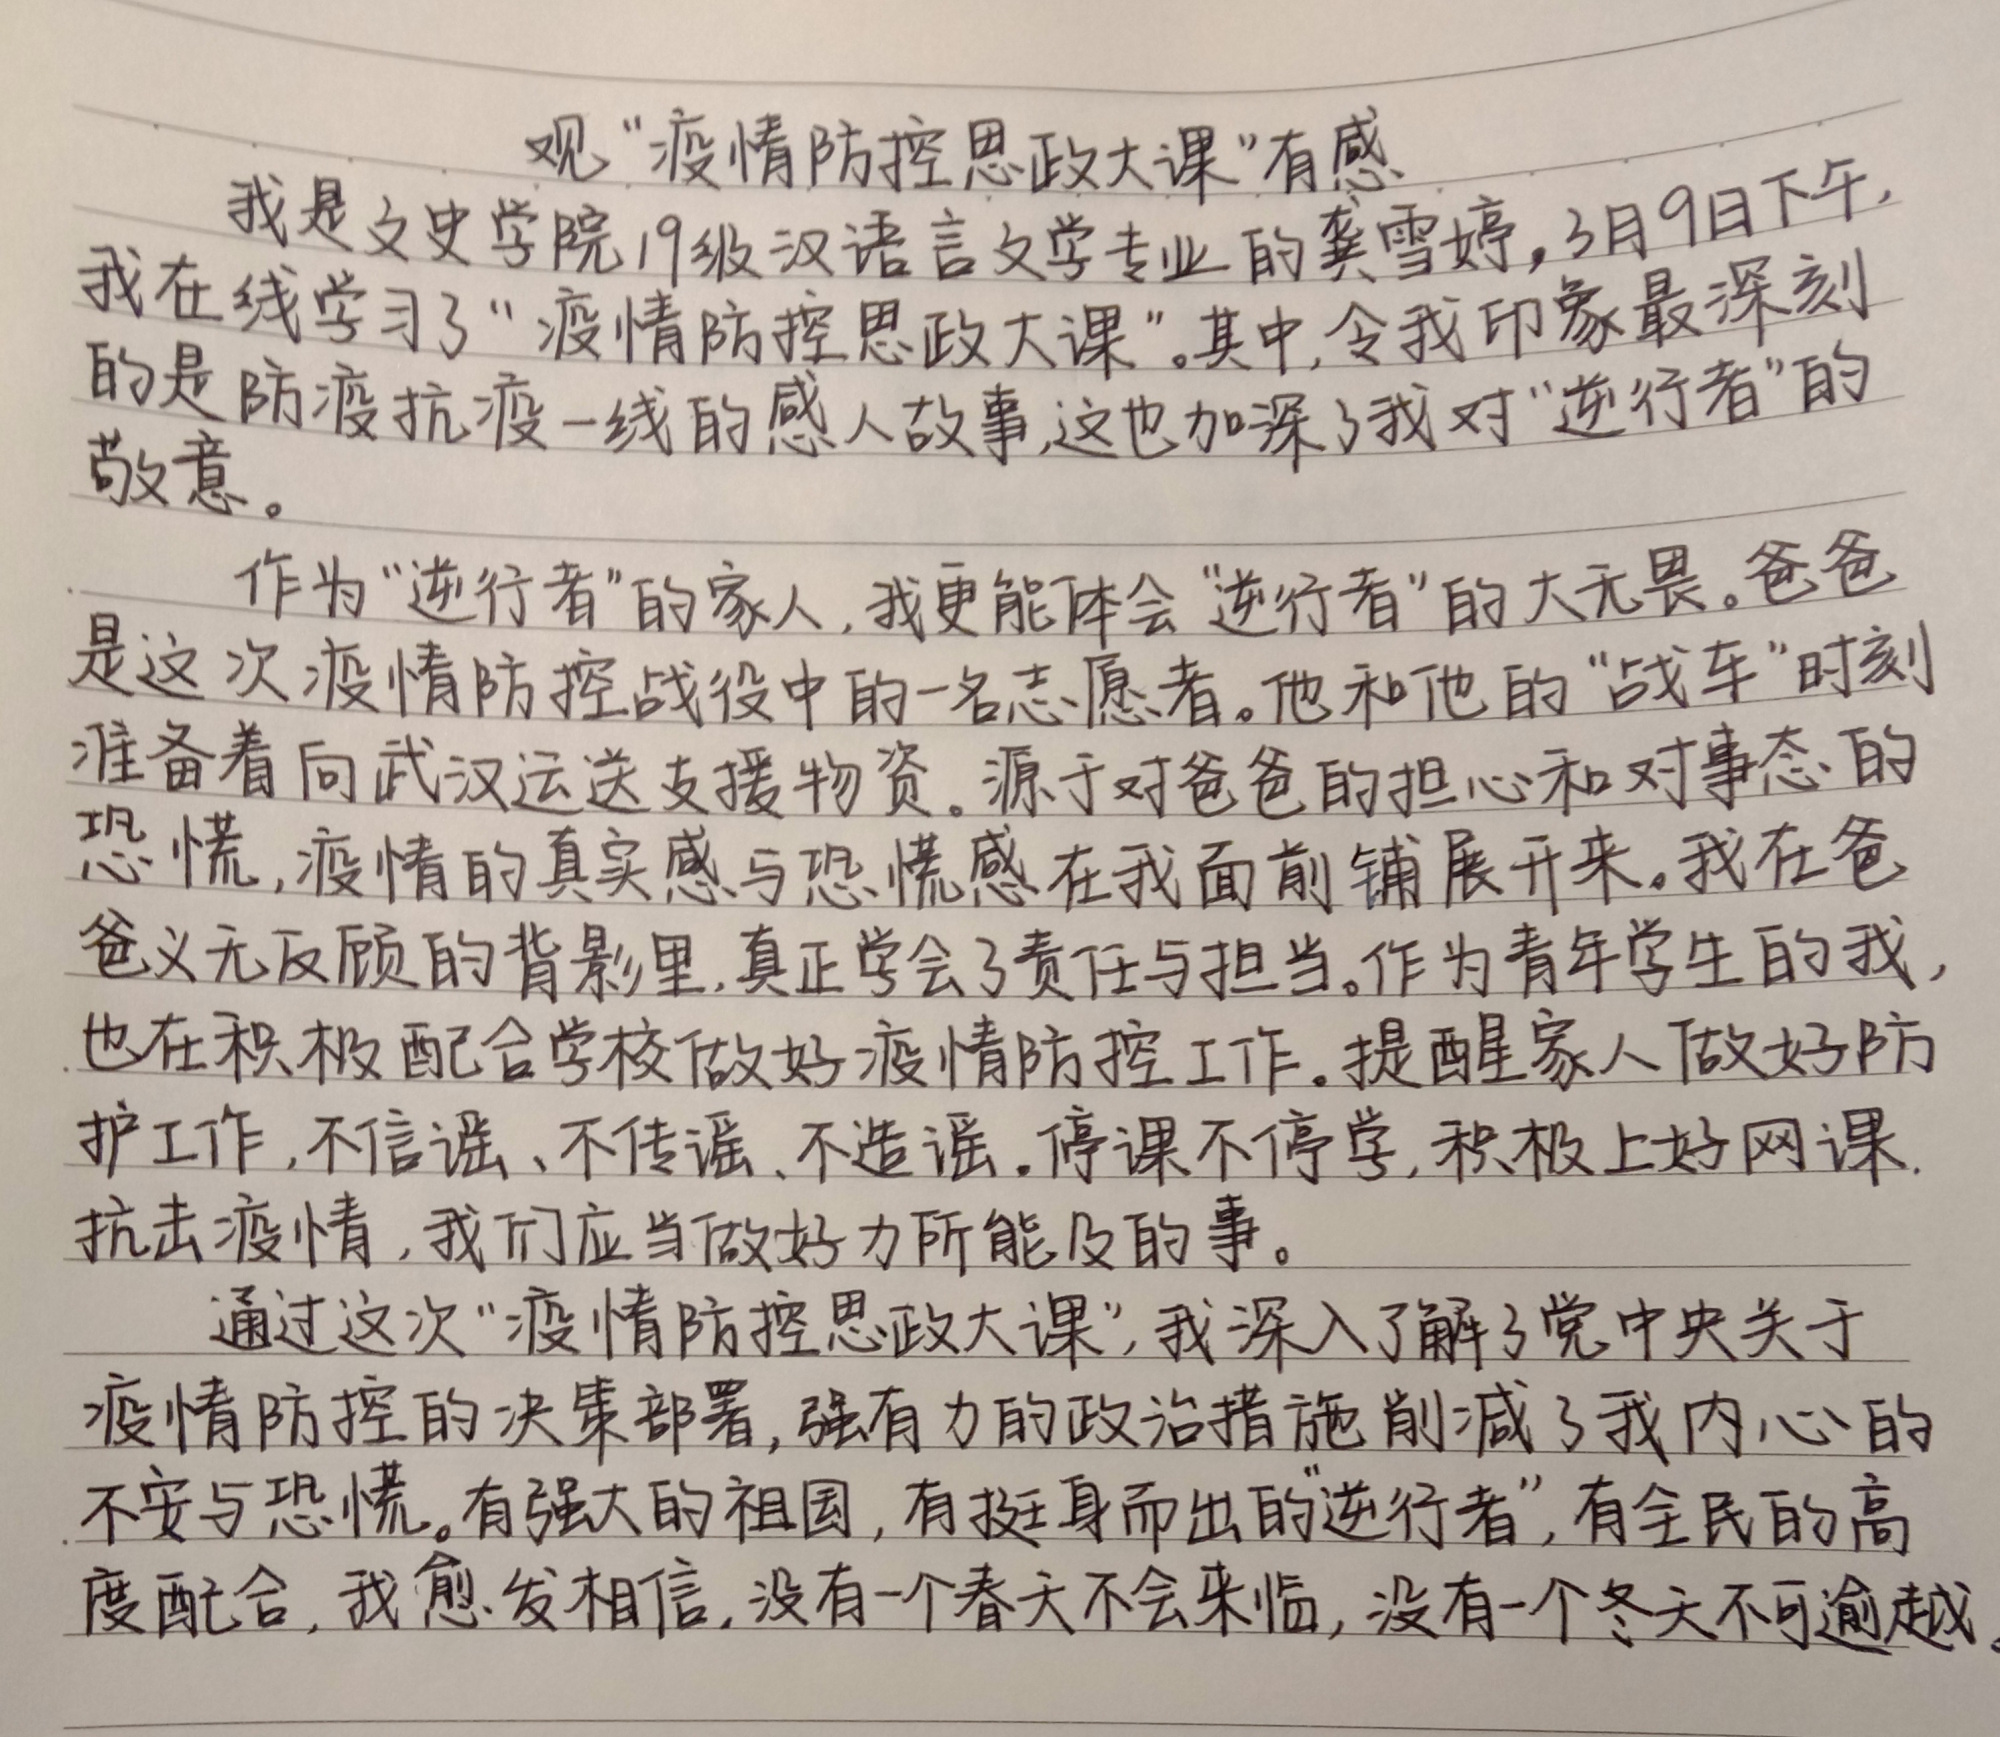 观“疫情防控思政大课”有感
我是文史学院19级汉语言文学专业的龚雪婷。3月9日下午，
我在线学习了“疫情防控思政大课”。其中，令我印象最深刻
的是防疫抗疫一线的感人故事，这也加深了我对“逆行者”的
敬意。
作为“逆行者”的家人，我更能体会“逆行者”的大无畏。爸爸
是这次疫情防控战役中的一名志愿者。他和他的“战车”时刻
准备着向武汉运送支援物资。源于对爸爸的担心和对事态的
恐慌，疫情的真实感与恐慌感在我面前铺展开来。我在爸
爸义无反顾的背影里，真正学会了责任与担当。作为青年学生的我，
也在积极配合学校做好疫情防控工作。提醒家人做好防
护工作，不信谣、不传谣、不造谣。停课不停学，积极上好网课.
抗击疫情，我们应当做好力所能及的事。
通过这次“疫情防控思政大课”，我深入了解了党中央关于
疫情防控的决策部署，强有力的政治措施削减了我内心的
不安与恐慌。有强大的祖国，有挺身而出的“逆行者”，有全民的高
度配合，我愈发相信，没有一个春天不会来临，没有一个冬天不可逾越。